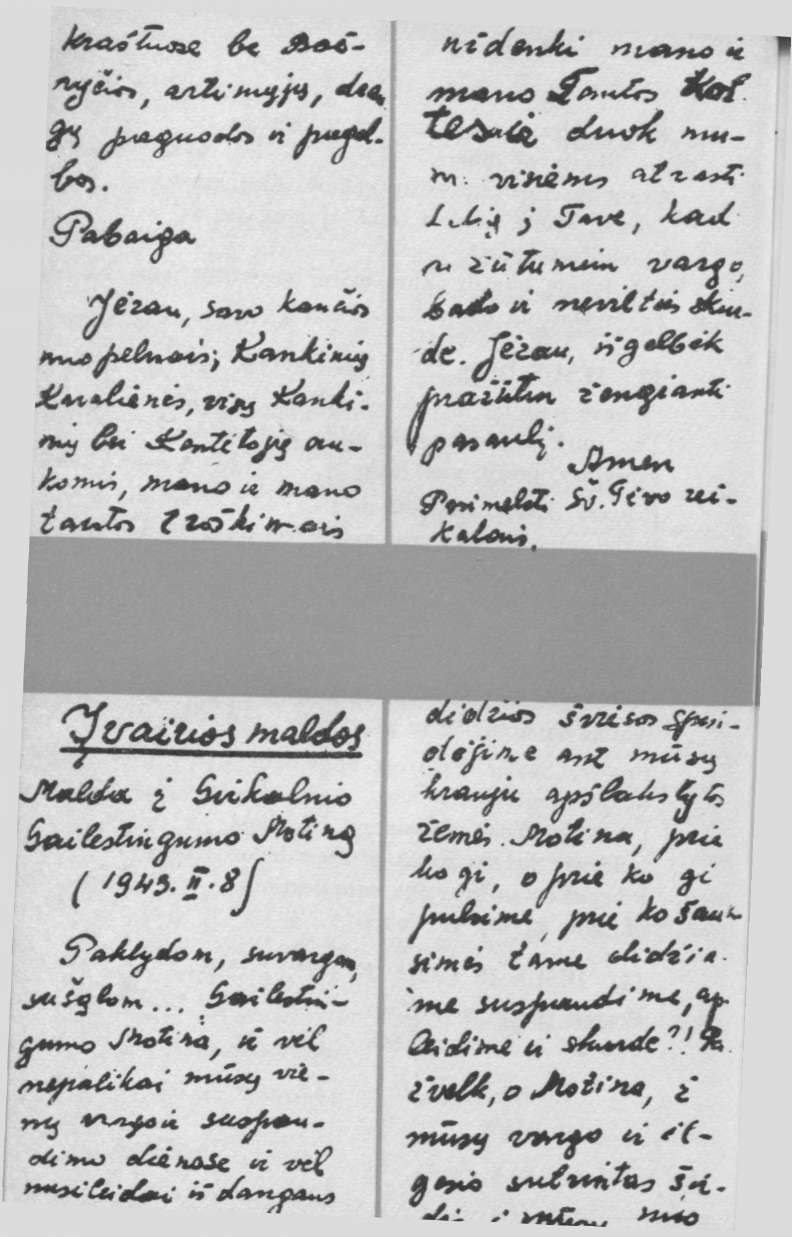 kraštuose be Baž-
nyčios, artimųjų, drau
gų paguodos ir pagal-
bos.
Pabaiga
Jėzau, savo kančios
nuopelnais, Kankinių
Karalienės, visų Kanki-
nių bei Kentėtojų au-
komis, mano ir mano
tautos troškimais
nidenki mano ir
mano Tautos
duok mu-
m visiems atrasti
į Tave, kad
nežūtumėm vargo,
bado ir nevilties sku-
de. Jėzau, išgelbėk
pražūtin žengiantį
pasaulį.
Amen
Pasimelsti Šv. Tėvo rei-
kalais.
Įvairios maldos
Malda į
Gailestingumo Motiną
(1943. II. 8)
Paklydom, suvargom,
sušalom... Gailestin-
gumo Motina, ir vėl
nepalikai mūsų vie-
nų vargo ir suspau-
dimo dienose ir vėl
nusileidai iš dangaus
didžios šviesos spin-
dėjime ant mūsų
krauju apšlakstytos
žemės. Motina, prie
ko gi, o prie ko gi
pulsime, prie ko šauk
simės tame didžia-
me suspaudime, ap
leidime ir skurde?! Pa
žvelk, o Motina, į
mūsų vargo ir il-
gesio sutrintas šir-
mūsų nuo